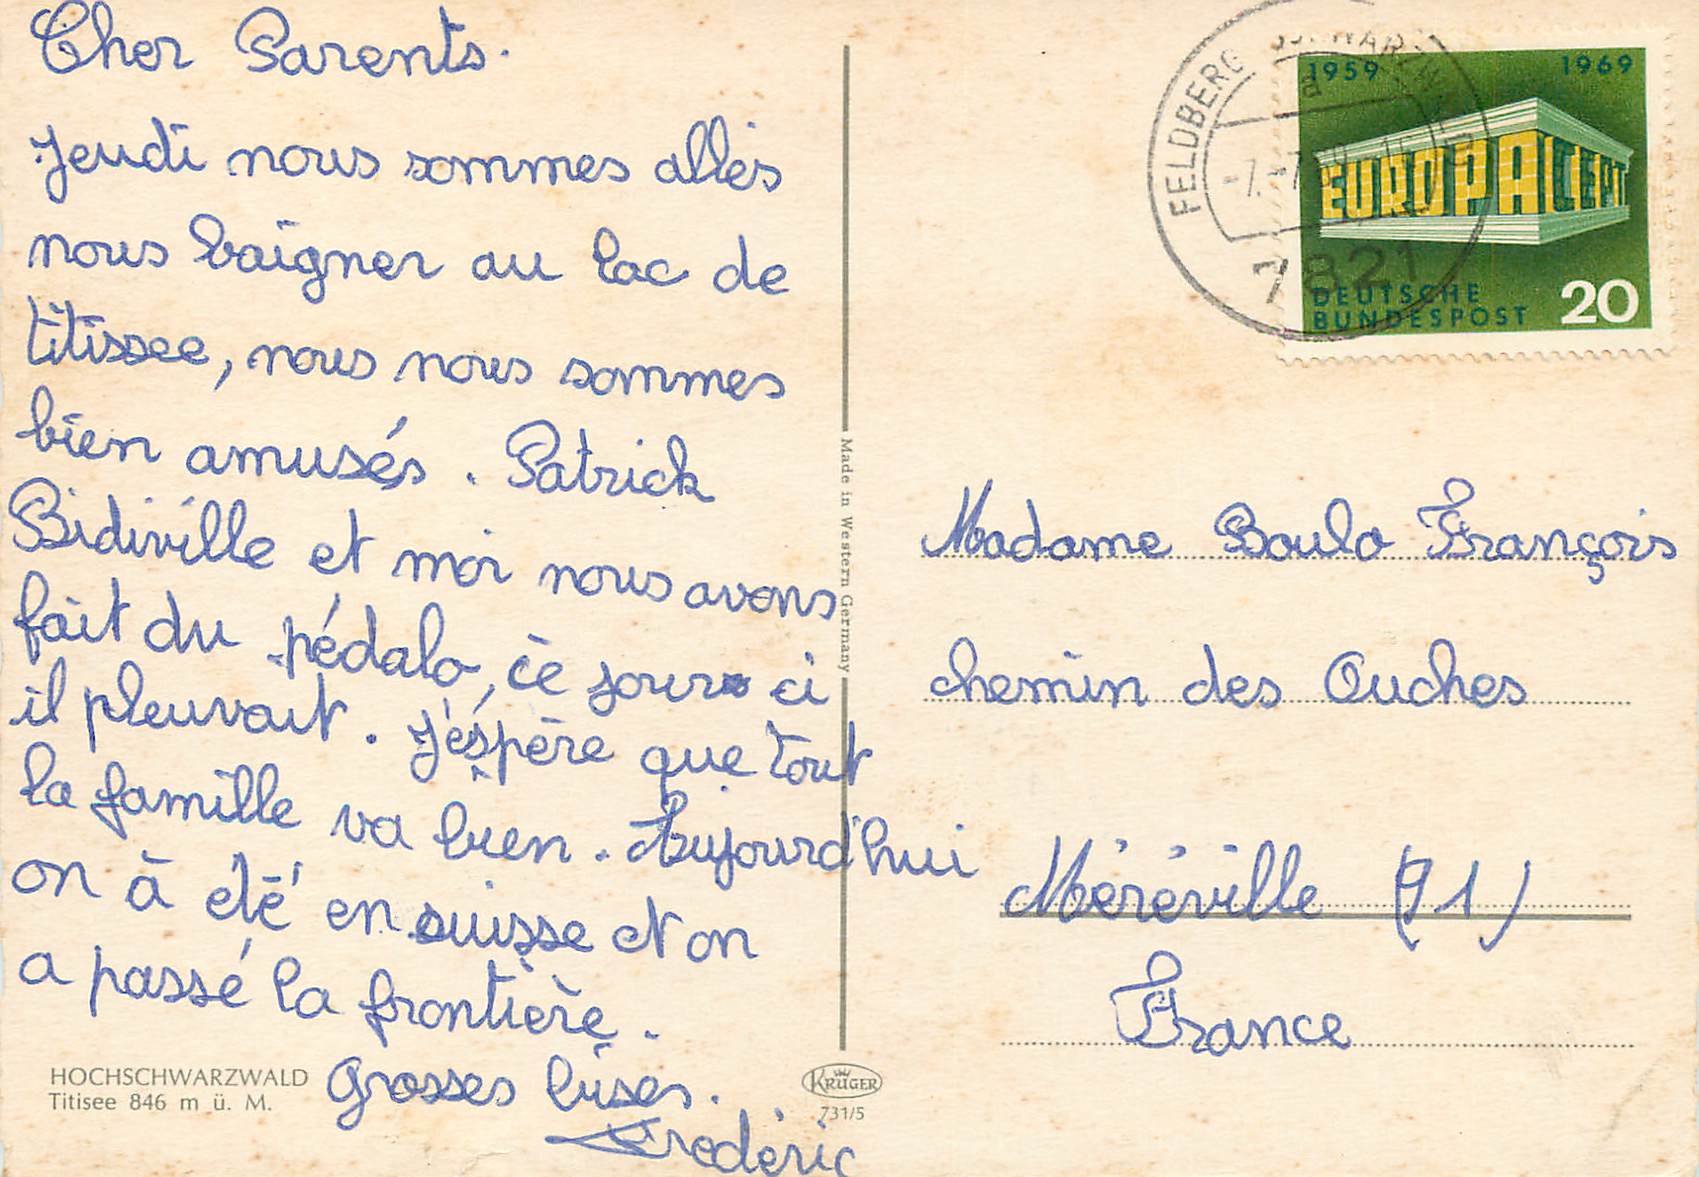 Cher Parents.
Jeudi nous sommes allés
nous baigner au lac de
titissee, nous nous sommes
bien amusés. Patrick
Bidiville et moi nous avons
fait du pédalo, ce jour ci
il pleuvait. J'éspère que tout
la famille va bien. Aujourd'hui
on à été en suisse et on
a passé la frontière.
Grosses bises.
Frederic
HOCHSCHWARZWALD
Titisee 846 m ü. M.
Made in Western Germany
KRÜGER
731/5
FELDBERG SCHWARZWALD
a
7821
1959 1969
EUROPA CEPT
DEUTSCHE
BUNDESPOST 20
Madame Boulo François
chemin des Ouches
Méréville (91)
France